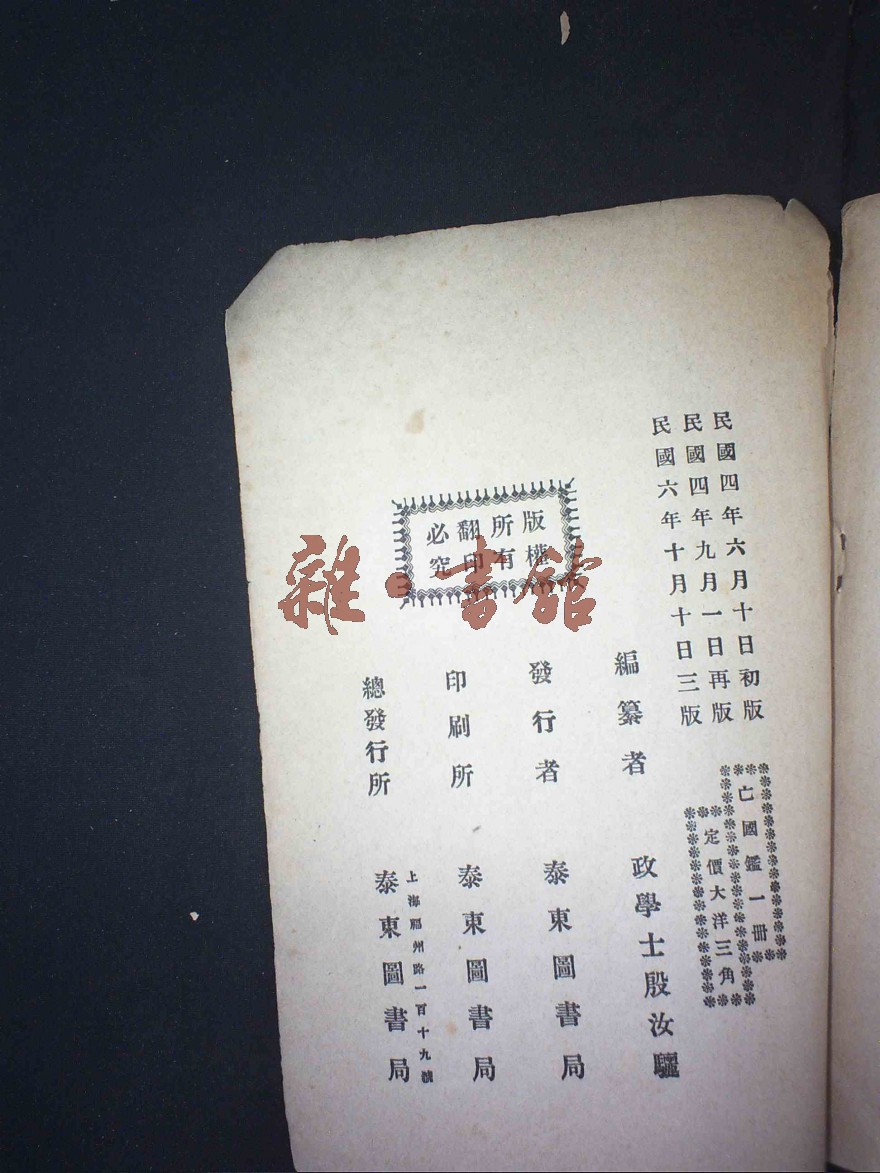 民國四年六月十日初版
民國四年九月一日再版
民國六年十月十日三版
亡國鑑一冊
定價大洋三角
編纂者 政學士殷汝驪
發行者 泰東圖書局
印刷所 泰東圖書局
總發行所 上海福州路一百十九號 泰東圖書局
版權
所有
翻印
必究
雜·書館